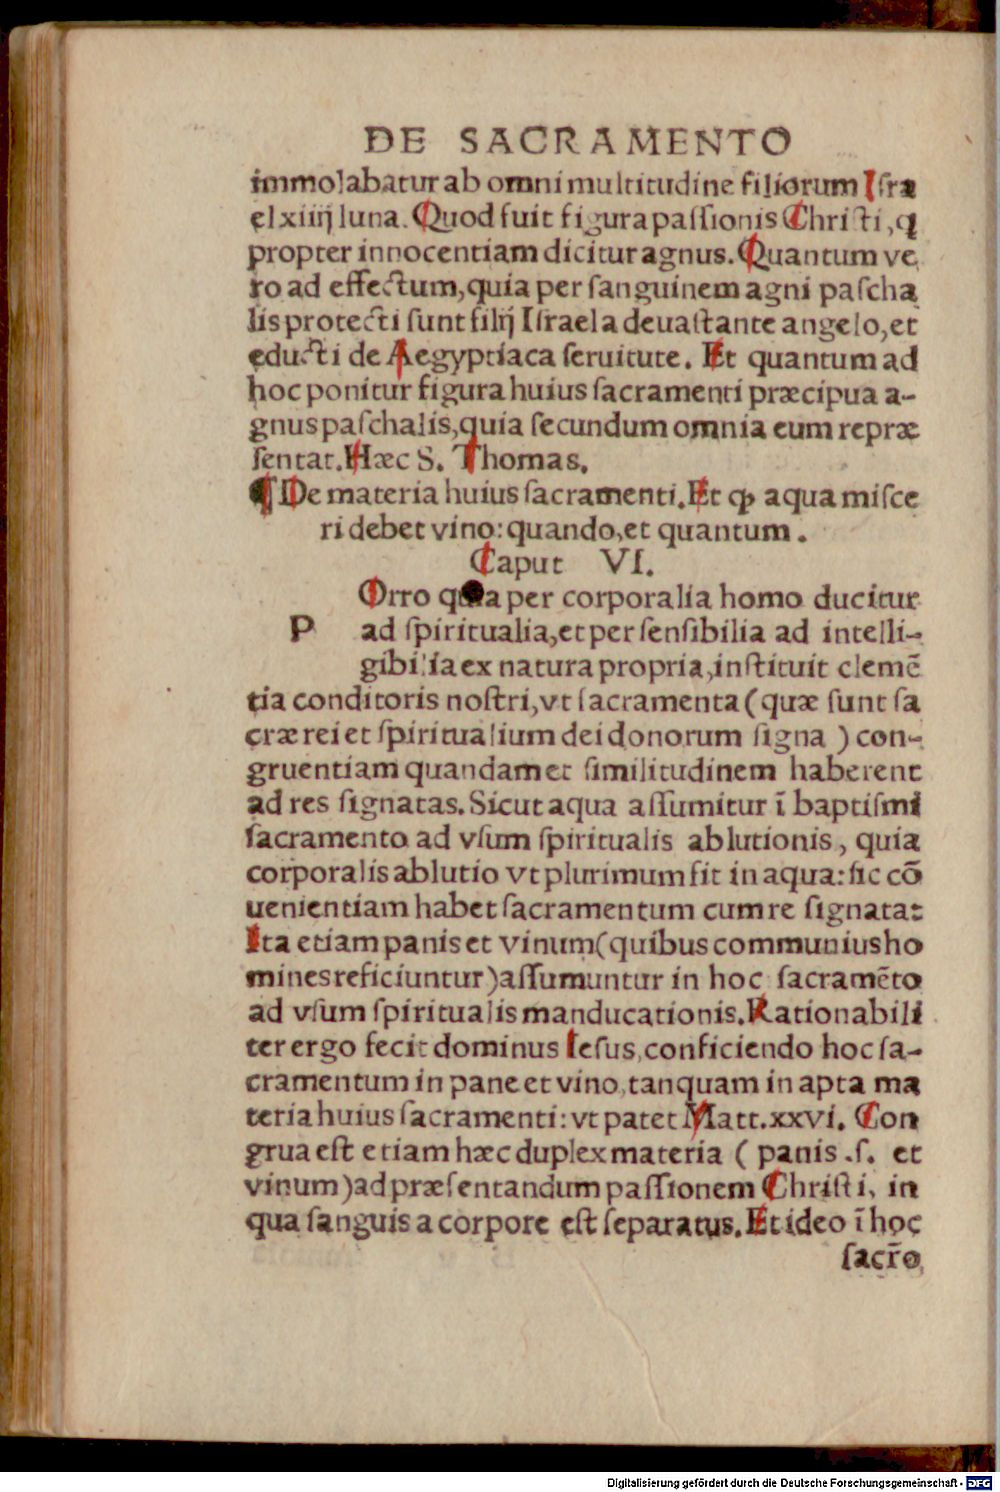 DE SACRAMENTO
immolabatur ab omni multitudine filiorum Iſra
el xiiij luna. Quod fuit figura paſſionis Chriſti, ꝗ
propter innocentiam dicitur agnus. Quantum ve
ro ad effectum, quia per ſanguinem agni paſcha
lis protecti ſunt filij Iſrael a deuaſtante angelo, et
educti de Aegyptiaca ſeruitute. Et quantum ad
hoc ponitur figura huius ſacramenti præcipua a-
gnus paſchalis, quia ſecundum omnia eum repræ
ſentat. Hæc S. Thomas.
¶ De materia huius ſacramenti. Et ꝙ aqua miſce
ri debet vino: quando, et quantum.
Caput VI.
Orro quia per corporalia homo ducitur
P ad ſpiritualia, et per ſenſibilia ad intelli-
gibilia ex natura propria, inſtituit clemē
tia conditoris noſtri, vt ſacramenta (quæ ſunt ſa
cræ rei et ſpiritualium dei donorum ſigna) con-
gruentiam quandam et ſimilitudinem haberent
ad res ſignatas. Sicut aqua aſſumitur ī baptiſmi
ſacramento ad vſum ſpiritualis ablutionis, quia
corporalis ablutio vt plurimum fit in aqua: ſic cō
uenientiam habet ſacramentum cum re ſignata:
Ita etiam panis et vinum (quibus communius ho
mines reficiuntur) aſſumuntur in hoc ſacramēto
ad vſum ſpiritualis manducationis. Rationabili
ter ergo fecit dominus Ieſus, conficiendo hoc ſa-
cramentum in pane et vino, tanquam in apta ma
teria huius ſacramenti: vt patet Matt. xxvi. Con
grua eſt etiam hæc duplex materia (panis .ſ. et
vinum) ad præſentandum paſſionem Chriſti, in
qua ſanguis a corpore eſt ſeparatus. Et ideo ī hoc
ſacr̄o
Digitalisierung gefördert durch die Deutsche Forschungsgemeinschaft - DFG